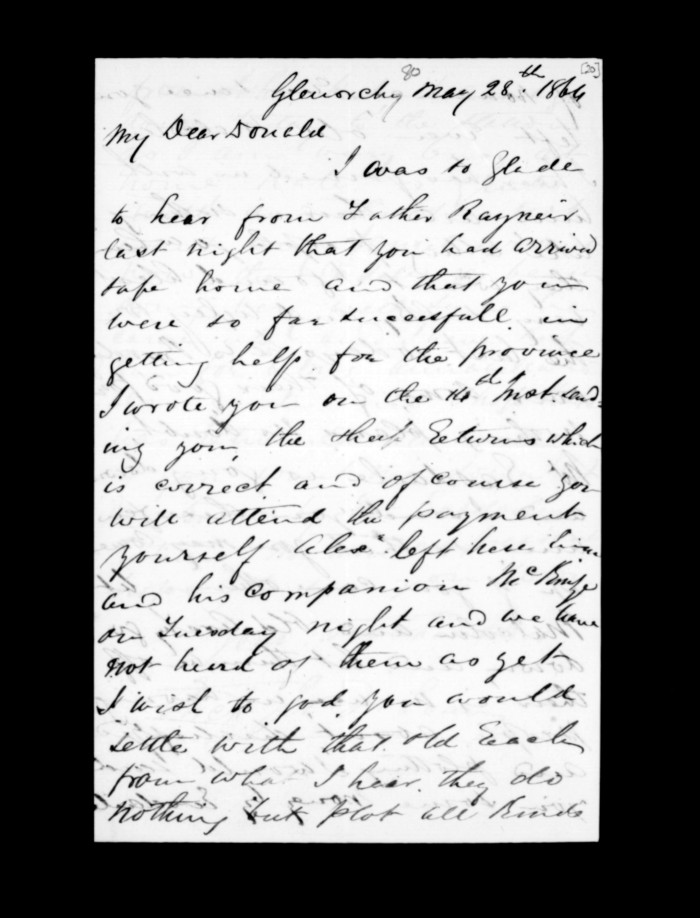 80 [20]
Glenorchy May 28.th 1864
My Dear Donald
I was to glade
to hear from Father Rayneir
last night that you had arrived
safe home and that you
were so far successfull in
getting help for the province
I wrote you on the 16th Inst. send-
ing you, the sheep Returns which
is correct and of course you
will attend the payment
yourself Alexr left here
and his companion McKinze
on Tuesday night and we have
not heard of them as yet
I wish to god you would
settle with that old
from what I hear they do
nothing but plot all kinds